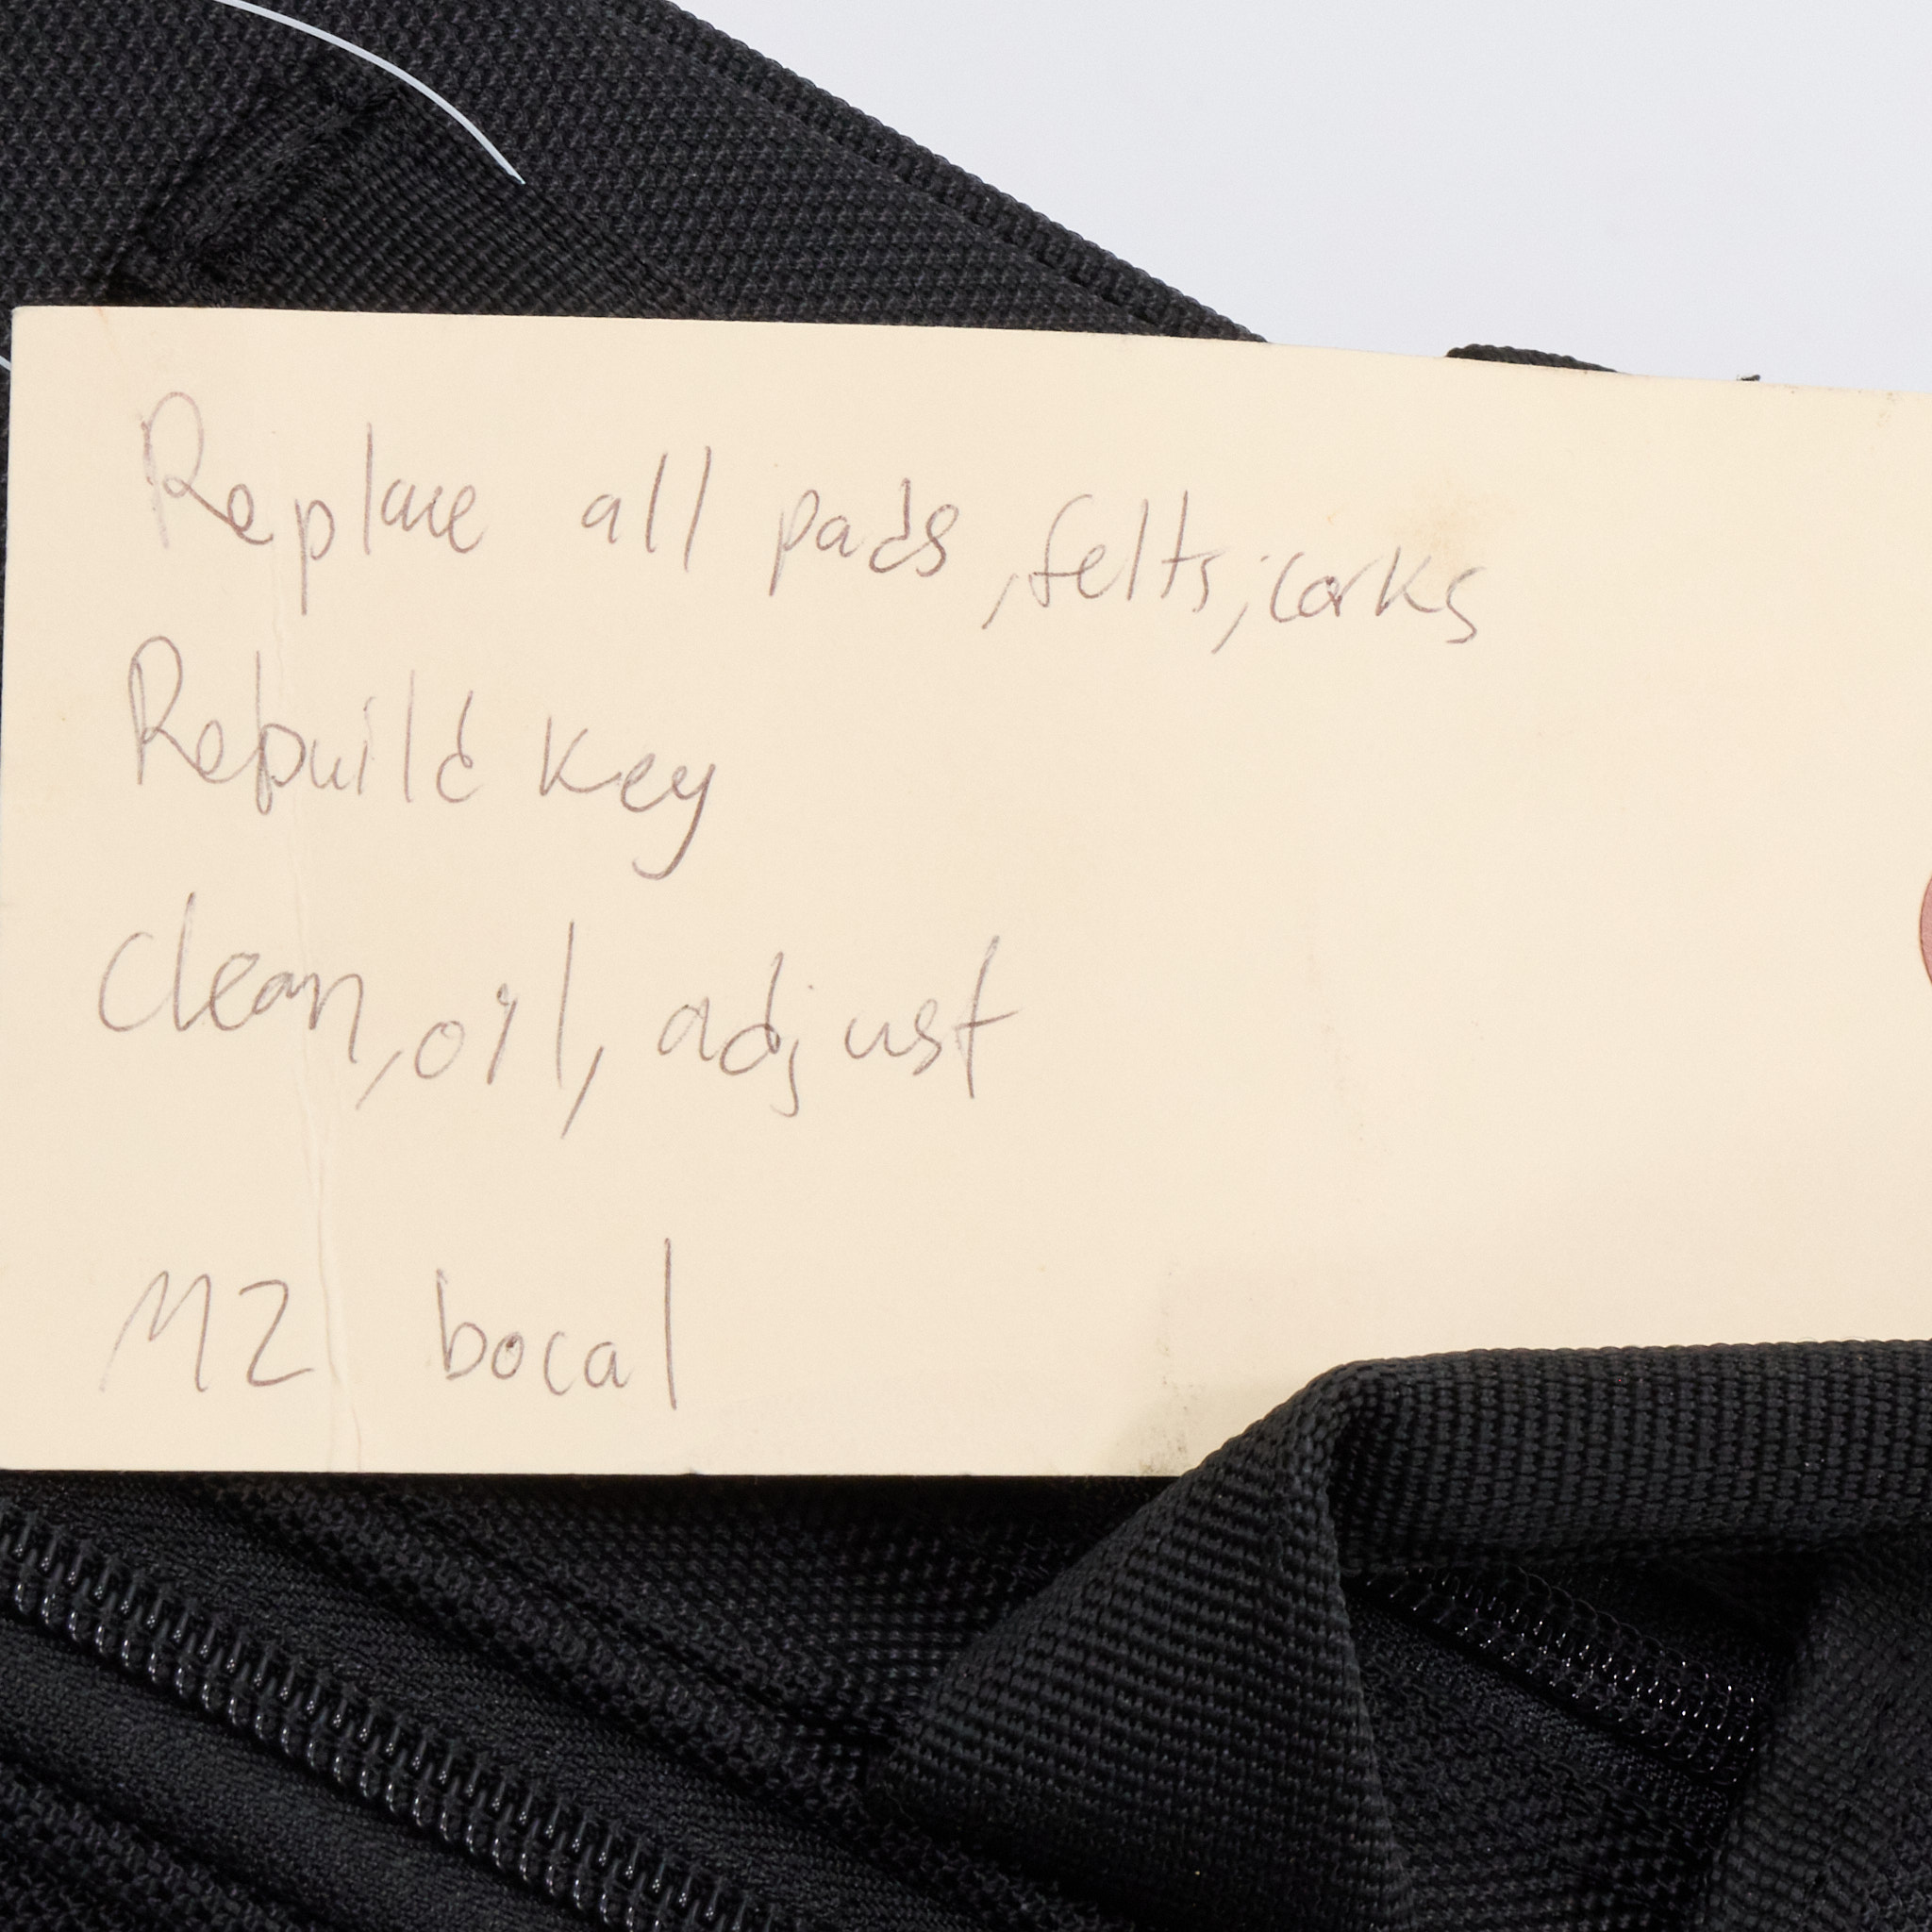 Replace all pads, felts, corks
Rebuild Key
Clean, oil, adjust
M2 bocal